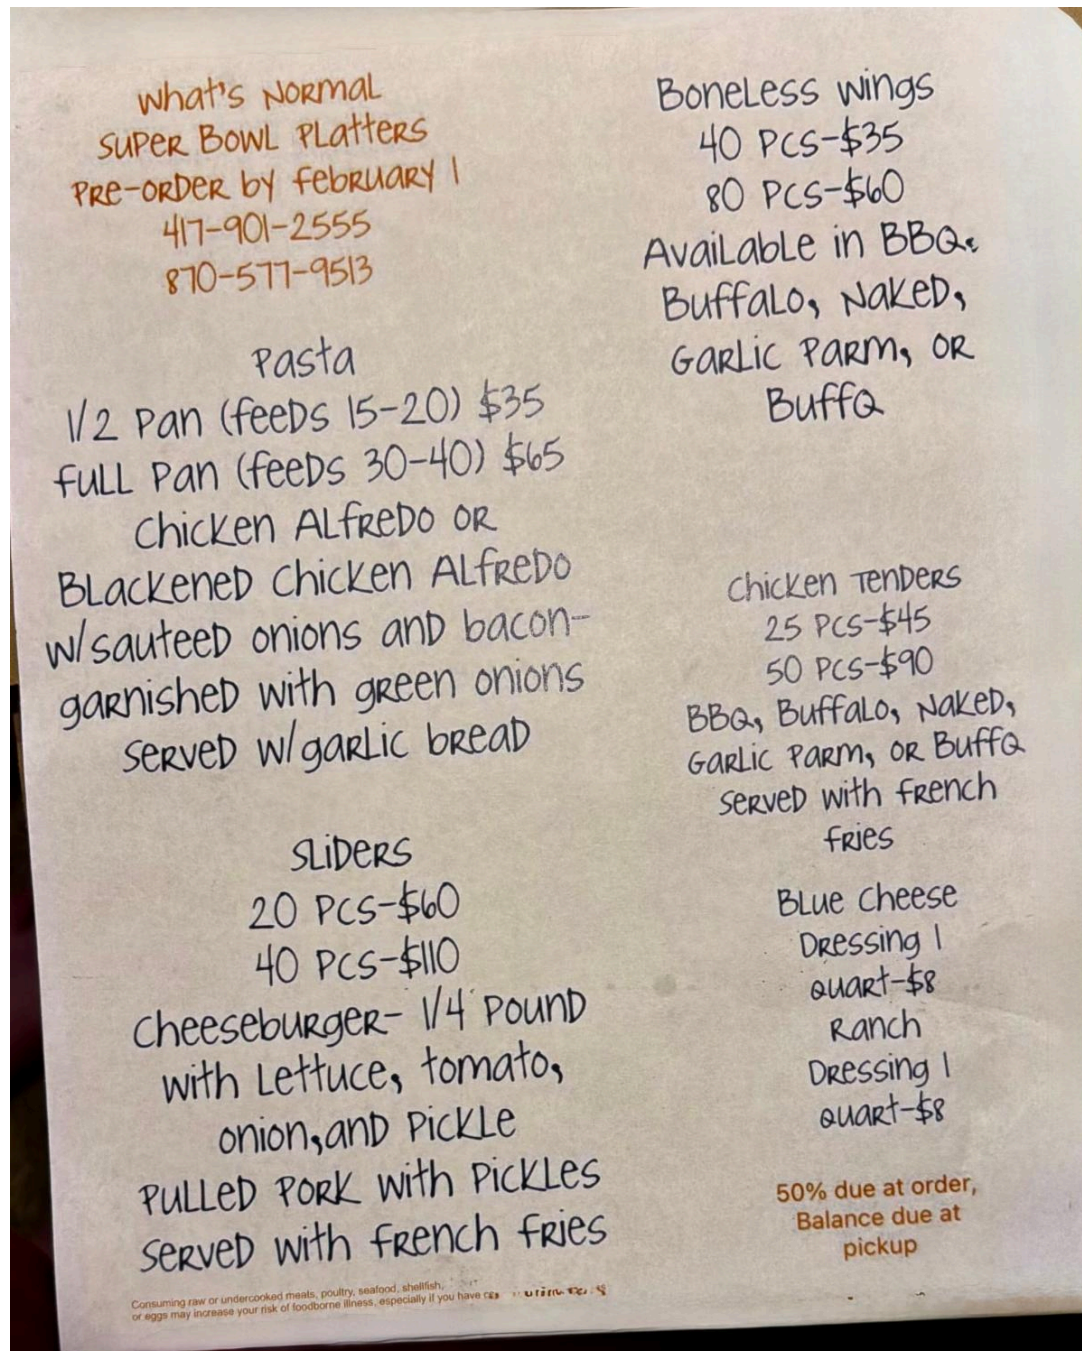 What's Normal
Super Bowl Platters
Pre-order by February 1
417-901-2555
870-577-9513
Pasta
1/2 Pan (feeds 15-20) $35
Full Pan (feeds 30-40) $65
Chicken Alfredo or
Blackened Chicken Alfredo
w/sauteed onions and bacon-
garnished with green onions
Served w/garlic bread
Sliders
20 pcs-$60
40 pcs-$110
Cheeseburger- 1/4 pound
with lettuce, tomato,
onion,and pickle
Pulled pork with pickles
Served with french fries
Consuming raw or undercooked meats, poultry, seafood, shellfish,
or eggs may increase your risk of foodborne illness, especially if you have
Boneless wings
40 pcs-$35
80 pcs-$60
Available in BBQ,
Buffalo, Naked,
Garlic Parm, or
BuffQ
Chicken Tenders
25 pcs-$45
50 pcs-$90
BBQ, Buffalo, Naked,
Garlic Parm, or BuffQ
Served with french
fries
Blue Cheese
Dressing 1
quart-$8
Ranch
Dressing 1
quart-$8
50% due at order,
Balance due at
pickup